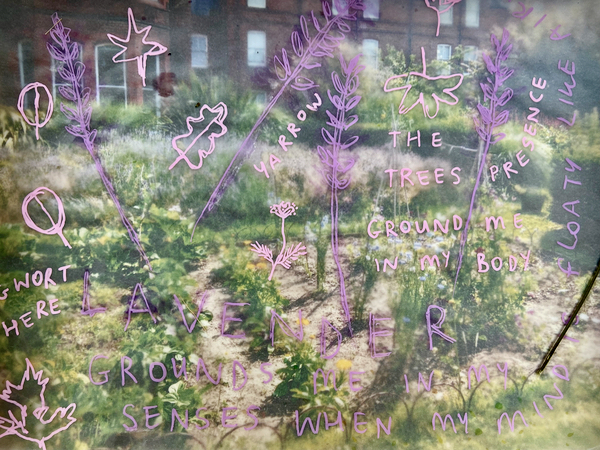 YARROW
THE
TREES PRESENCE
GROUND ME
IN MY BODY
SWORT
HERE
LAVENDER
GROUNDS ME IN MY
SENSES WHEN MY MIND IS
FLOATY LIKE